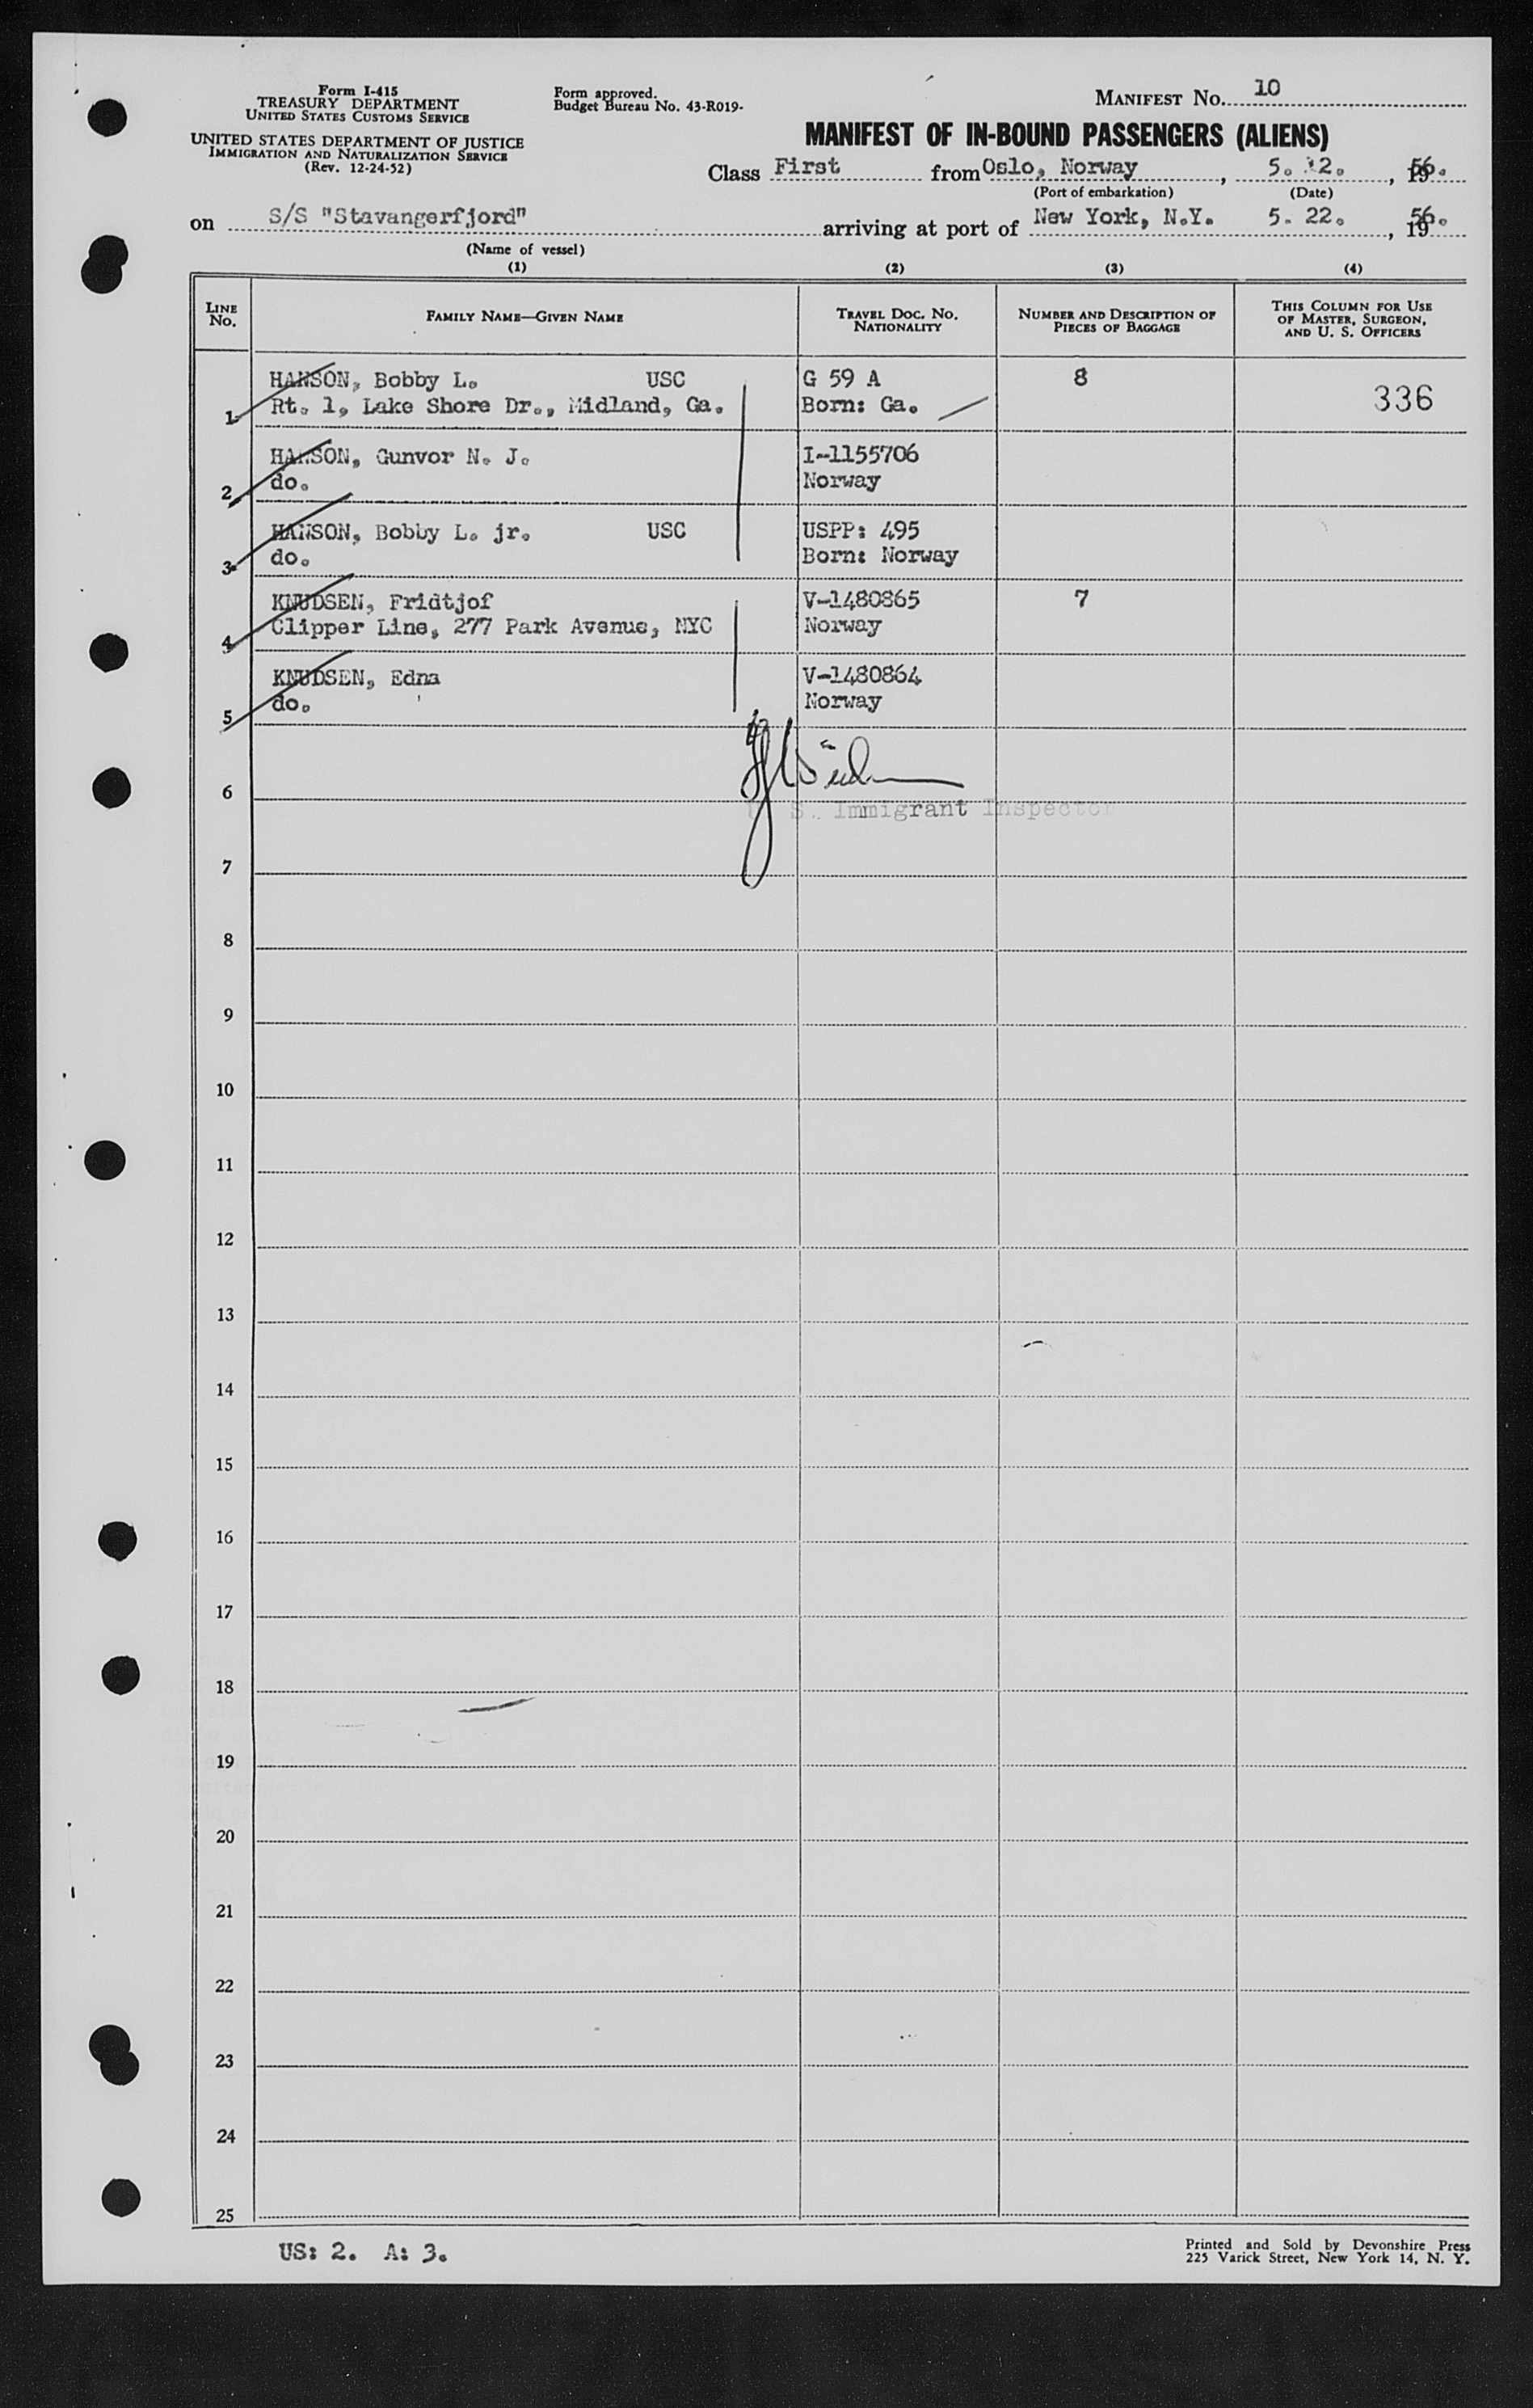 Form I-415
TREASURY DEPARTMENT
UNITED STATES CUSTOMS SERVICE
UNITED STATES DEPARTMENT OF JUSTICE
IMMIGRATION AND NATURALIZATION SERVICE
(Rev. 12-24-52)
Form approved.
Budget Bureau No. 43-R019-
MANIFEST No. 10
MANIFEST OF IN-BOUND PASSENGERS (ALIENS)
Class First from Oslo, Norway, 5. 12., 1956.
(Port of embarkation) (Date)
on S/S "Stavangerfjord" arriving at port of New York, N.Y. 5. 22., 1956.
(Name of vessel)
(1) (2) (3) (4)
LINE No. FAMILY NAME—GIVEN NAME TRAVEL DOC. NO. NATIONALITY NUMBER AND DESCRIPTION OF PIECES OF BAGGAGE THIS COLUMN FOR USE OF MASTER, SURGEON, AND U. S. OFFICERS
HANSON, Bobby L. USC G 59 A 8
1 Rt. 1, Lake Shore Dr., Midland, Ga. Born: Ga. 336
HANSON, Gunvor N. J. I-1155706
2 do. Norway
HANSON, Bobby L. jr. USC USPP: 495
3 do. Born: Norway
KNUDSEN, Fridtjof V-1480865 7
4 Clipper Line, 277 Park Avenue, NYC Norway
KNUDSEN, Edna V-1480864
5 do. Norway
6
U. S. Immigrant Inspector
7
8
9
10
11
12
13
14
15
16
17
18
19
20
21
22
23
24
25
US: 2. A: 3.
Printed and Sold by Devonshire Press
225 Varick Street, New York 14, N. Y.